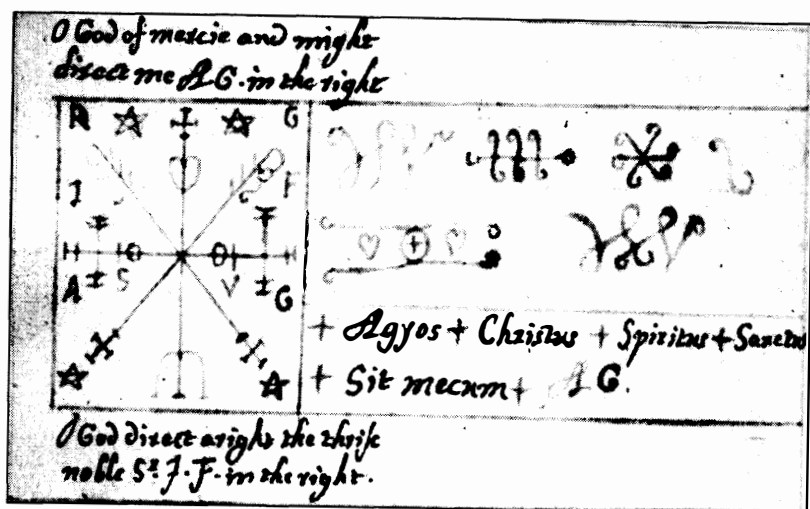 O God of mercie and might
direct me A G. in the right
A G
I F
S
A S V G
+ Agyos + Christus + Spiritus + Sanctus
+ Sit mecum + A G.
O God direct aright the thrise
noble Sr. J. F. in the right.